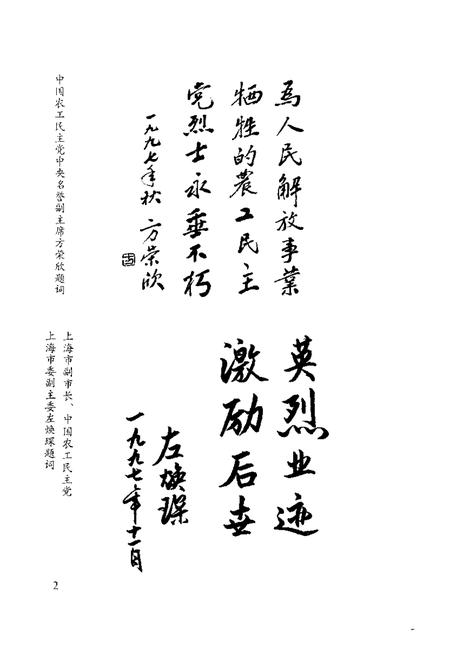 為人民解放事業
牺牲的農工民主
党烈士永垂不朽
一九九七年秋 方荣欣
中国农工民主党中央名誉副主席方荣欣题词
英烈业迹
激励后世
左焕琛
一九九七年十一月
上海市副市长、中国农工民主党
上海市委副主委左焕琛题词
2